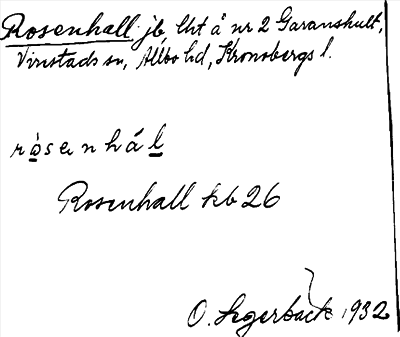 Rosenhall jb, lht å nr 2 Garanshult,
Virestads sn, Allbo hd, Kronobergs l.
ròsenhál
Rosenhall kb 26
O. Segerbäck 1932